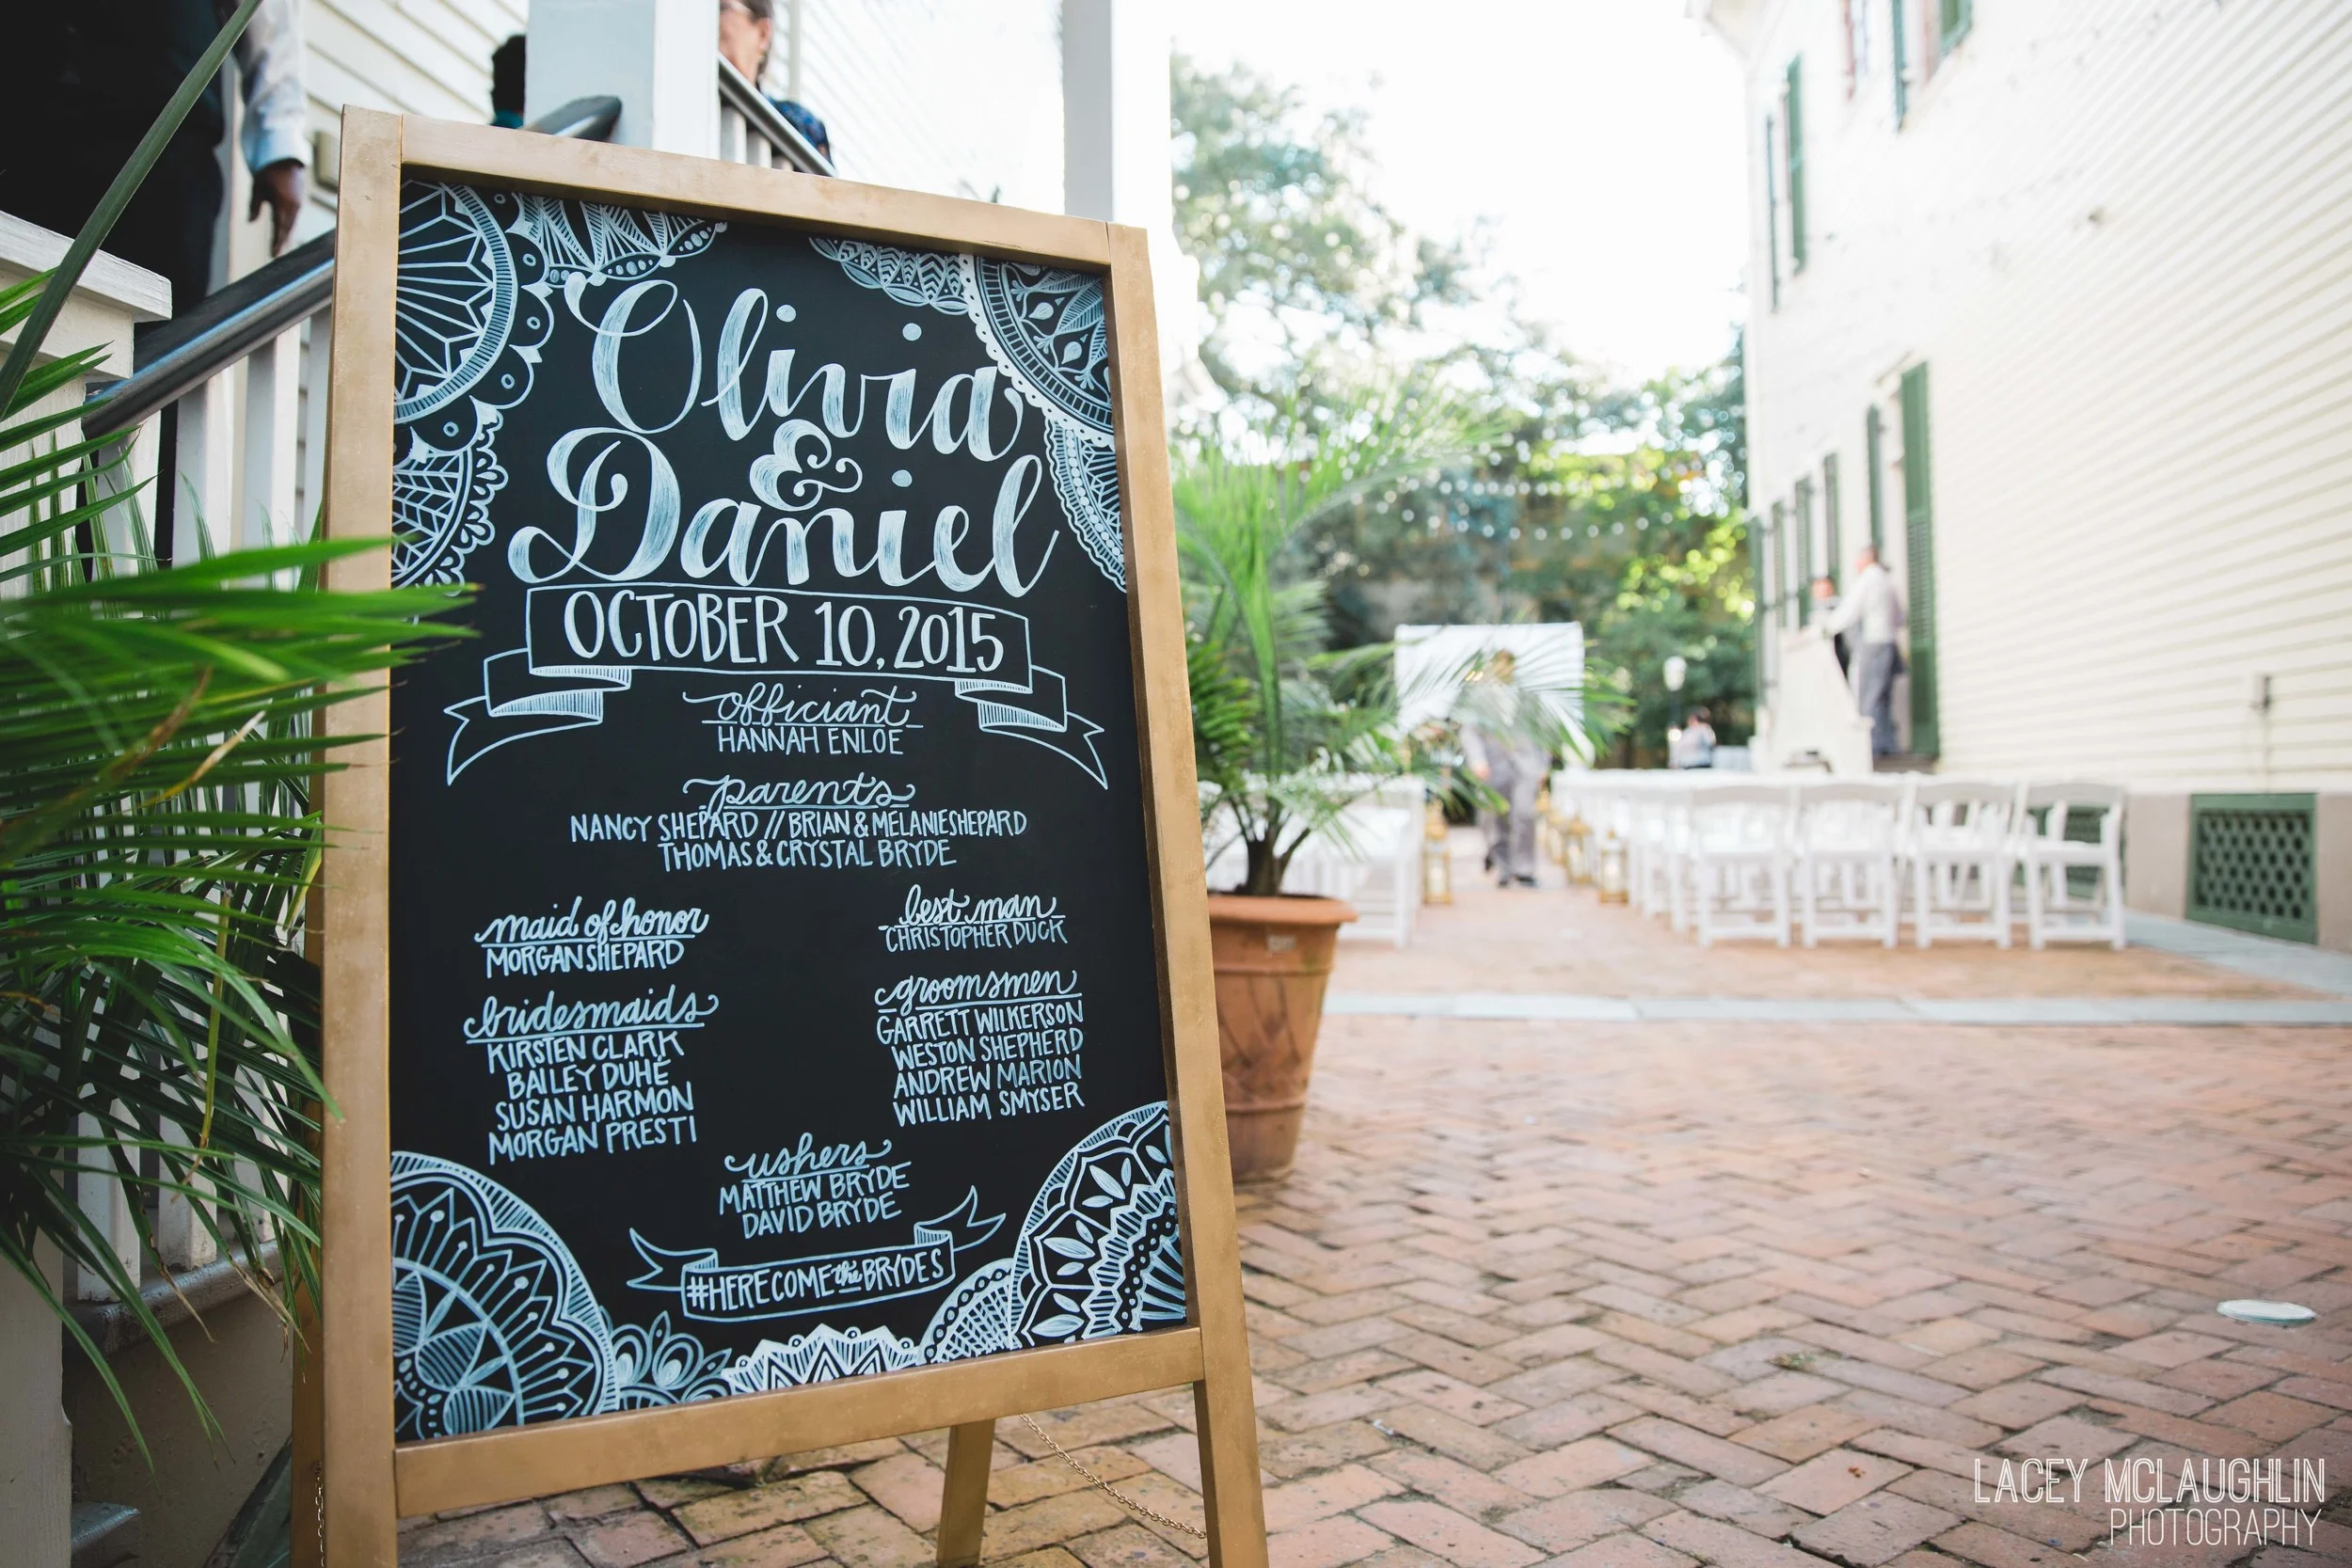 Olivia
&
Daniel
OCTOBER 10, 2015
officiant
HANNAH ENLOE
parents
NANCY SHEPARD // BRIAN & MELANIE SHEPARD
THOMAS & CRYSTAL BRYDE
maid of honor
MORGAN SHEPARD
bridesmaids
KIRSTEN CLARK
BAILEY DUHÉ
SUSAN HARMON
MORGAN PRESTI
best man
CHRISTOPHER DUCK
groomsmen
GARRETT WILKERSON
WESTON SHEPHERD
ANDREW MARION
WILLIAM SMYSER
ushers
MATTHEW BRYDE
DAVID BRYDE
#HERECOMEtheBRYDES
LACEY MCLAUGHLIN
PHOTOGRAPHY